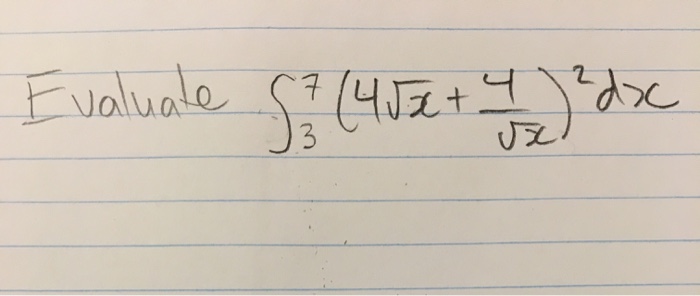 Evaluate ∫₃⁷ (4√x + 4/√x)² dx